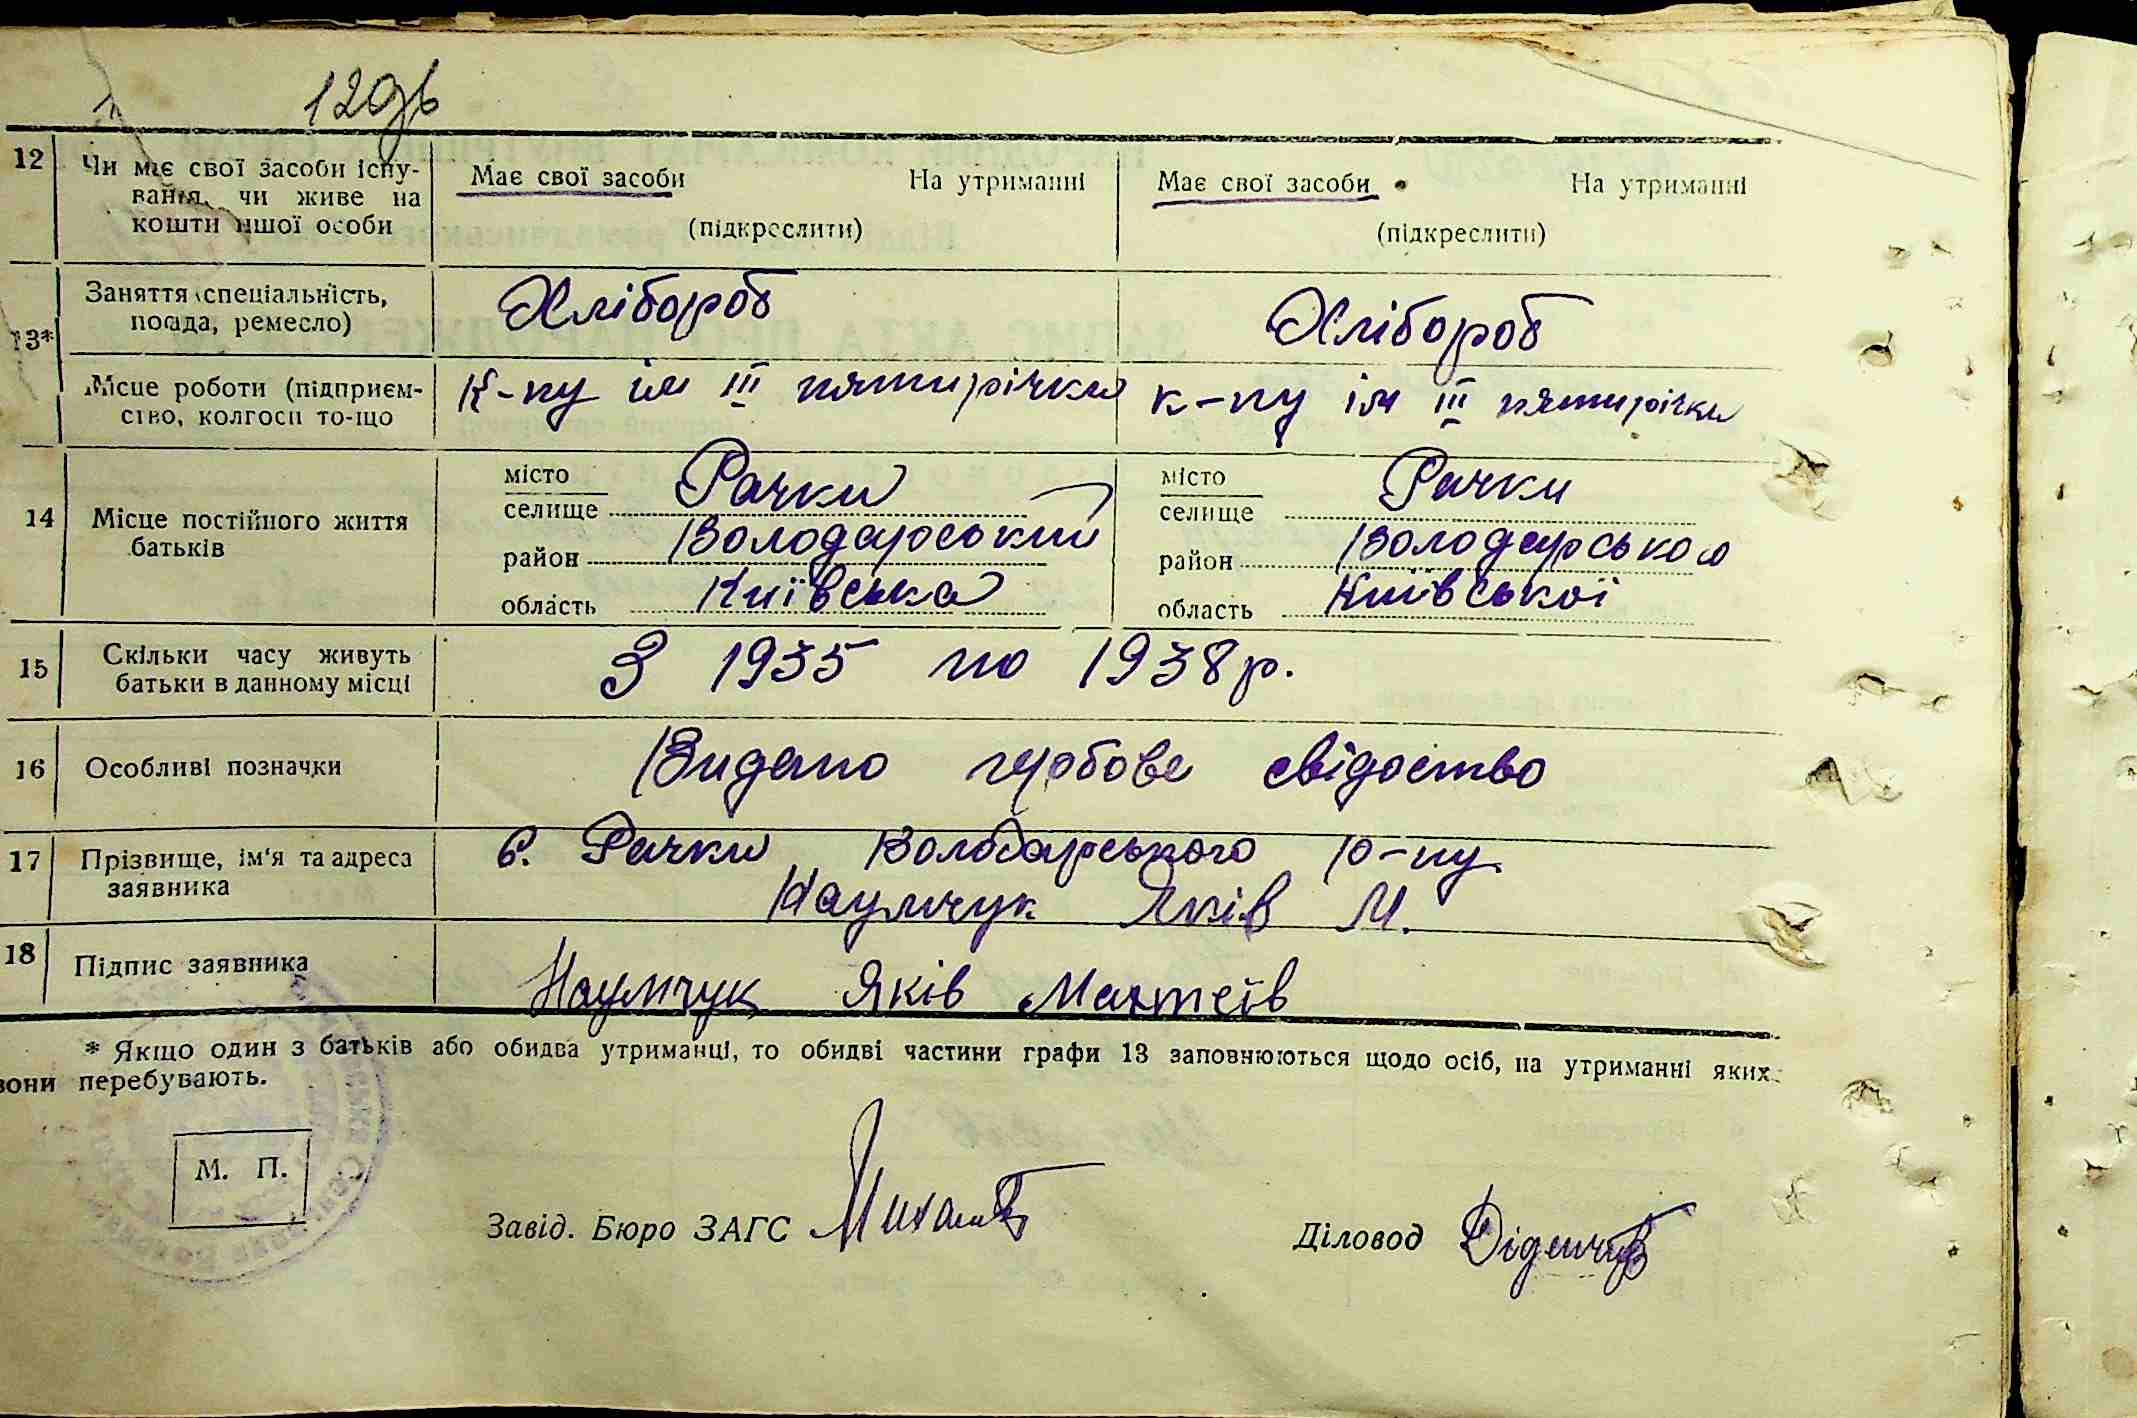 120зв
12 Чи має свої засоби існу-
вання, чи живе на
кошти іншої особи
Має свої засоби На утриманні
(підкреслити)
Має свої засоби На утриманні
(підкреслити)
13* Заняття (спеціальність,
посада, ремесло)
Хлібороб Хлібороб
Місце роботи (підприєм-
ство, колгосп то-що
К-пу ім III пятирічки к-пу ім III пятирічки
14 Місце постійного життя
батьків
місто
селище Рачки
район Володарський
область Київська
місто
селище Рачки
район Володарського
область Київської
15 Скільки часу живуть
батьки в данному місці
З 1935 по 1938 р.
16 Особливі позначки
Видано гербове свідоство
17 Прізвище, ім'я та адреса
заявника
с. Рачки Володарського р-ну
Наумчук Яків М.
18 Підпис заявника
Наумчук Яків Махтеїв
* Якщо один з батьків або обидва утриманці, то обидві частини графи 13 заповнюються щодо осіб, на утриманні яких
вони перебувають.
М. П.
Завід. Бюро ЗАГС
Діловод